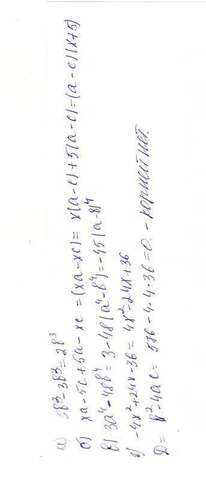 а) 5b³-3b³=2b³
б) xa-5c+5a-xc=(xa-xc)= x(a-c)+5(a-c)=(a-c)(x+5)
в) 3a⁴-48b⁴=3-48(a⁴-b⁴)=-45(a-8)⁴
г) -4x²+24x-36= 4x²-24x+36
D= b²-4ac= 576-4·4·36=0. -корней нет.